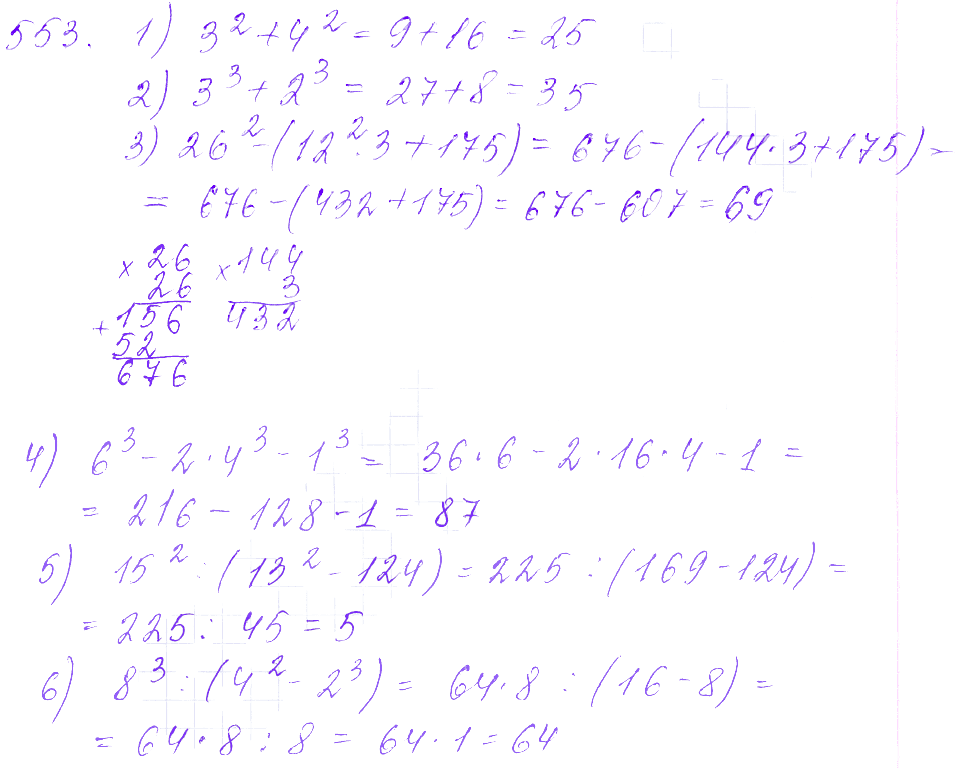 553. 1) 3² + 4² = 9 + 16 = 25
2) 3³ + 2³ = 27 + 8 = 35
3) 26² - (12² · 3 + 175) = 676 - (144 · 3 + 175) =
= 676 - (432 + 175) = 676 - 607 = 69
× 26 × 144
26 3
+ 156 432
52
676
4) 6³ - 2 · 4³ - 1³ = 36 · 6 - 2 · 16 · 4 - 1 =
= 216 - 128 - 1 = 87
5) 15² : (13² - 124) = 225 : (169 - 124) =
= 225 : 45 = 5
6) 8³ : (4² - 2³) = 64 · 8 : (16 - 8) =
= 64 · 8 : 8 = 64 · 1 = 64